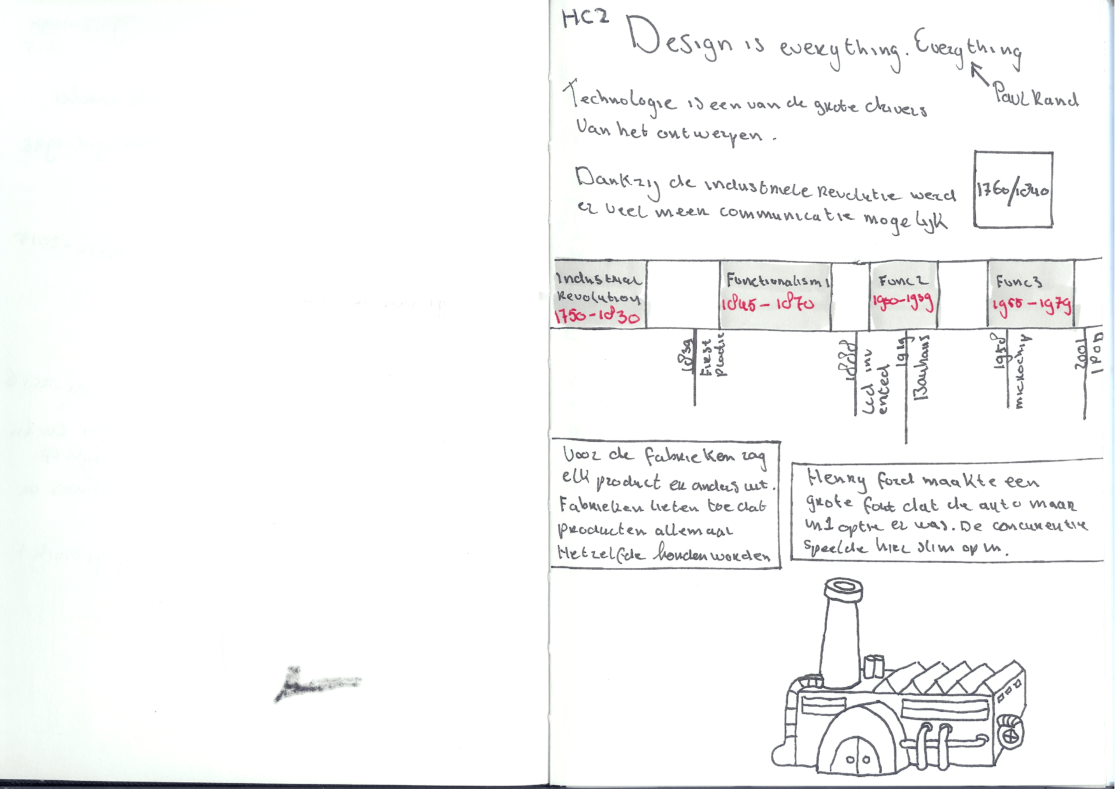 HC2
Design is everything. Everything
Paul Rand
Technologie is een van de grote drivers
Van het ontwerpen.
Dankzij de industriele Revolutie werd
er veel meer communicatie mogelijk
1760/1840
Industrial
Revolution
1750-1830
Functionalism 1
1845-1870
Func 2
1900-1939
Func 3
1955-1979
1839
First
1888
Led inv
ented
1919
Bauhaus
1958
microchip
2001
IPOD
Voor de fabrieken zag
elk product er anders uit.
Fabrieken lieten toe dat
producten allemaal
Hetzelfde konden worden
Henry ford maakte een
grote fout dat de auto maar
in 1 optie er was. De concurentie
speelde hier slim op in.